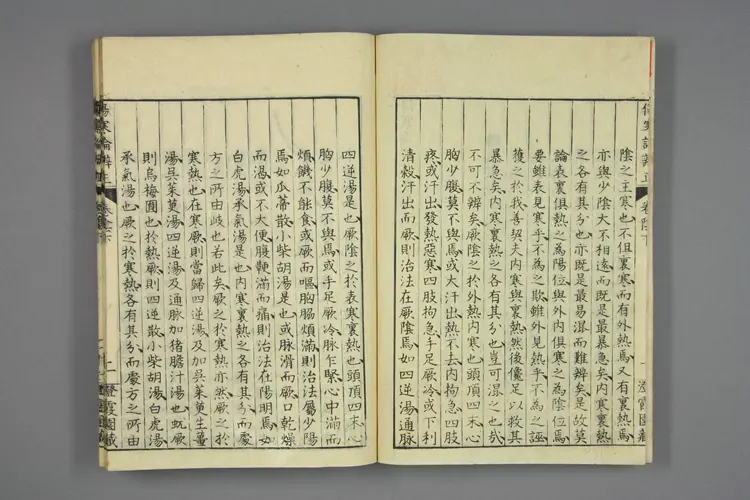 陰之主寒也不但裏寒而有外熱焉又有裏熱焉
亦與少陰大不相遠而既是最暴急矣內寒裏熱
之各有其分也亦既是最易混而難辨矣是故莫
論表裏俱熱之為陽位與外內俱寒之為陰位焉
要雖表見寒乎不為之欺雖外見熱乎不為之誣
獲之於我善契夫內寒與裏熱然後儳足以救其
暴急矣內寒裏熱之各有其分也豈可混之也哉
不可不辨矣厥陰之於外熱內寒也頭項四末心
胸少腹莫不與焉或大汗出熱不去內拘急四肢
疼或汗出發熱惡寒四肢拘急手足厥冷或下利
清穀汗出而厥則治法在厥陰焉如四逆湯通脉
傷寒論辨正
卷陸下
澄霞園藏
四逆湯是也厥陰之於表寒裏熱也頭項四末心
胸少腹莫不與焉或手足厥冷脉乍緊心中滿而
煩飢不能食或厥而嘔胸脇煩滿則治法屬少陽
焉如瓜蔕散小柴胡湯是也或脉滑而厥口乾燥
而渴或不大便腹鞕滿而痛則治法在陽明焉如
白虎湯承氣湯是也內寒裏熱之各有其分而處
方之所由歧也若此矣厥之於寒熱亦然厥之於
寒熱也在寒厥則當歸四逆湯及加吳茱萸生薑
湯吳茱萸湯四逆湯及通脉加猪膽汁湯也蚘厥
則烏梅圓也於熱厥則四逆散小柴胡湯白虎湯
承氣湯也厥之於寒熱各有其分而處方之所由
傷寒論辨正
卷陸下
澄霞園藏